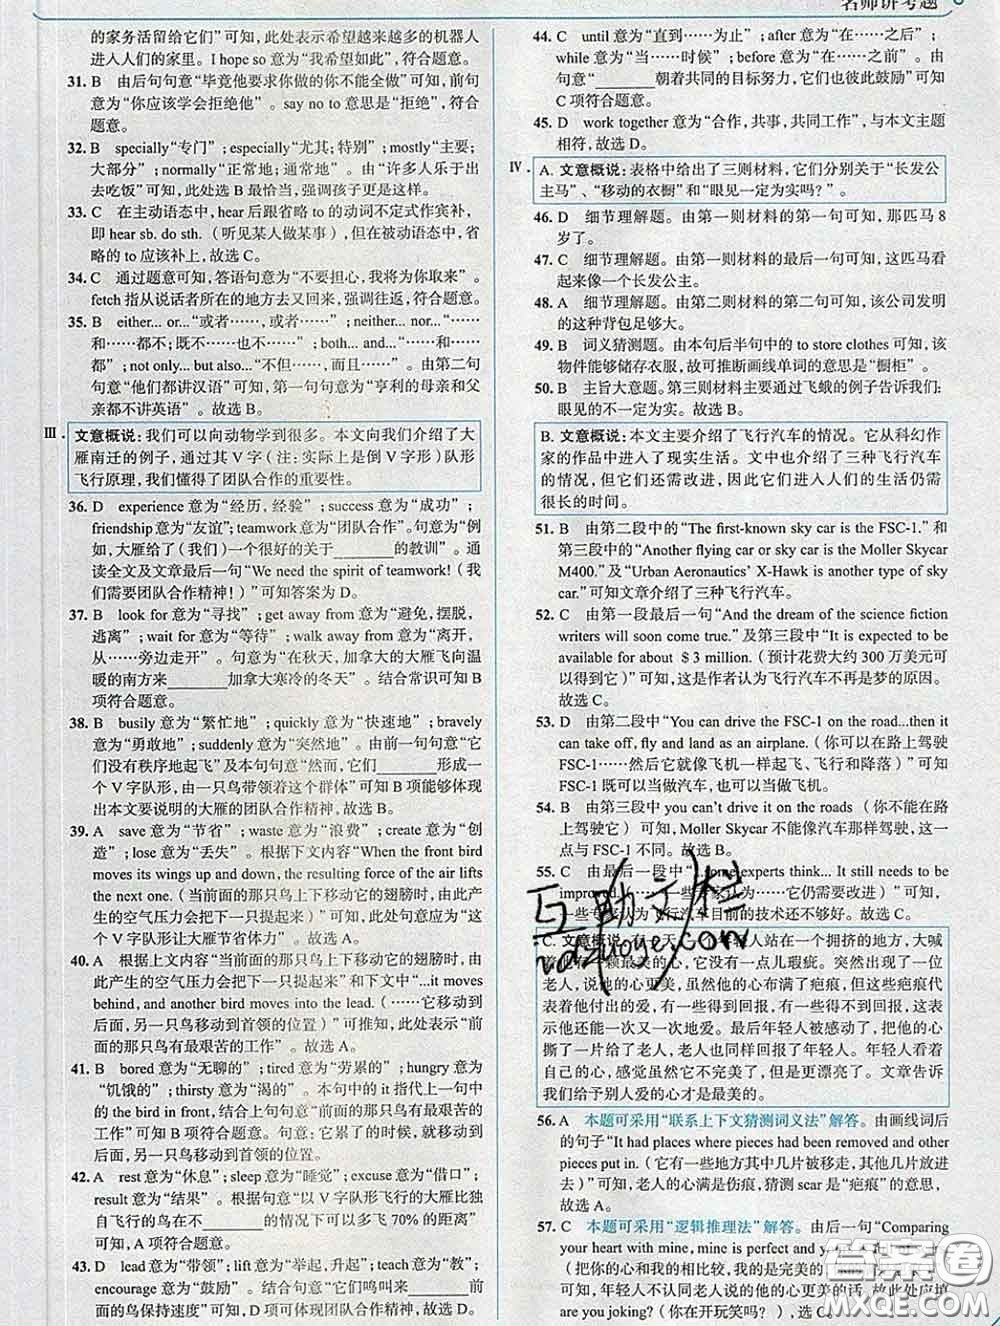 名师讲考题
的家务活留给它们”可知，此处表示希望越来越多的机器人
进入人们的家里。I hope so 意为“我希望如此”，符合题意。
31. B 由后句句意“毕竟他要求你做的你不能全做”可知，前句
意为“你应该学会拒绝他”。say no to 意思是“拒绝”，符合
题意。
32. B specially“专门”；especially“尤其；特别”；mostly“主要；
大部分”；normally“正常地；通常地”。由“许多人乐于出
去吃饭”可知，此处选 B 最恰当，强调孩子更是这样。
33. C 在主动语态中，hear 后跟省略 to 的动词不定式作宾补，
即 hear sb. do sth.（听见某人做某事），但在被动语态中，省
略的 to 应该补上，故选 C。
34. C 通过题意可知，答语句意为“不要担心，我将为你取来”。
fetch 指从说话者所在的地方去又回来，强调往返，符合题意。
35. B either... or...“或者……，或者……”；neither... nor...“……
和……都不；既不……也不……”；both... and...“……和……
都”；not only... but also...“不但……，而且……”。由第二句
句意“他们都讲汉语”可知，第一句句意为“亨利的母亲和父
亲都不讲英语”。故选 B。
Ⅲ. 文意概说：我们可以向动物学到很多。本文向我们介绍了大
雁南迁的例子，通过其 V 字（注：实际上是倒 V 字形）队形
飞行原理，我们懂得了团队合作的重要性。
36. D experience 意为“经历，经验”；success 意为“成功”；
friendship 意为“友谊”；teamwork 意为“团队合作”。句意为“例
如，大雁给了（我们）一个很好的关于________的教训”。通
读全文及文章最后一句“We need the spirit of teamwork!（我
们需要团队合作精神！）”可知答案为 D。
37. B look for 意为“寻找”；get away from 意为“避免，摆脱，
逃离”；wait for 意为“等待”；walk away from 意为“离开，
从……旁边走开”。句意为“在秋天，加拿大的大雁飞向温
暖的南方来________加拿大寒冷的冬天”。结合常识可知 B
项符合题意。
38. B busily 意为“繁忙地”；quickly 意为“快速地”；bravely
意为“勇敢地”；suddenly 意为“突然地”。由前一句句意“它
们没有秩序地起飞”及本句句意“然而，它们________形成一
个 V 字形，由一只鸟带领着这个群体”可知 B 项能够体现
出本文要说明的大雁的团队合作精神，故选 B。
39. A save 意为“节省”；waste 意为“浪费”；create 意为“创
造”；lose 意为“丢失”。根据下文内容“When the front bird
moves its wings up and down, the resulting force of the air lifts
the next one.（当前面的那只鸟上下移动它的翅膀时，由此产
生的空气压力会把下一只提起来）”可知，此处句意应为“这
个 V 字队形让大雁节省体力”。故选 A。
40. A 根据上文内容“当前面的那只鸟上下移动它的翅膀时，由
此产生的空气压力会把下一只提起来”和下文中“...it moves
behind, and another bird moves into the lead.（……它移动到
后面，另一只鸟移动到首领的位置）”可推知，此处表示“前
面的那只鸟有最艰苦的工作”。故选 A。
41. B bored 意为“无聊的”；tired 意为“劳累的”；hungry 意为
“饥饿的”；thirsty 意为“渴的”。本句中的 it 指代上一句中
的 the bird in front，结合上句句意“前面的那只鸟有最艰苦的
工作”可知 B 项符合题意。句意：它累了的时候，就移动到
后面，另一只鸟移动到首领的位置。
42. A rest 意为“休息”；sleep 意为“睡觉”；excuse 意为“借口”；
result 意为“结果”。根据句意“以 V 字队形飞行的大雁比独
自飞行的鸟在不________的情况下可以多飞 70%的距离”
可知，A 项符合题意。
43. D lead 意为“带领”；lift 意为“举起，升起”；teach 意为“教”；
encourage 意为“鼓励”。结合句意“它们鸣叫来________前
面的鸟保持速度”可知 D 项可体现团队合作精神，故选 D。
44. C until 意为“直到……为止”；after 意为“在……之后”；
while 意为“当……时候”；before 意为“在……之前”。由
句意“________朝着共同的目标努力，它们也彼此鼓励”可知
C 项符合题意。
45. D work together 意为“合作，共事，共同工作”，与本文主题
相符，故选 D。
Ⅳ. A. 文意概说：表格中给出了三则材料，它们分别关于“长发公
主马”、“移动的衣橱”和“眼见一定为实吗？”。
46. D 细节理解题。由第一则材料的第一句可知，那匹马 8
岁了。
47. C 细节理解题。由第一则材料的最后一句可知，这匹马看
起来像一个长发公主。
48. A 细节理解题。由第二则材料的第二句可知，该公司发明
的这种背包足够大。
49. B 词义猜测题。由本句后半句中的 to store clothes 可知，该
物件能够储存衣服，故可推断画线单词的意思是“橱柜”。
50. B 主旨大意题。第三则材料主要通过飞蛾的例子告诉我们：
眼见的不一定为实。故选 B。
B. 文意概说：本文主要介绍了飞行汽车的情况。它从科幻作
家的作品中进入了现实生活。文中介绍了三种飞行汽车
的情况，但它们还需改进，因此它们进入人们的生活仍需
很长的时间。
51. B 由第二段中的“The first-known sky car is the FSC-1.”和
第三段中的“Another flying car or sky car is the Moller Skycar
M400.”及“Urban Aeronautics’ X-Hawk is another type of sky
car.”可知文章介绍了三种飞行汽车。
52. C 由第一段最后一句“And the dream of the science fiction
writers will soon come true.”及第三段中“It is expected to be
available for about ＄3 million.（预计花费大约 300 万美元可
以得到它）”可知，这是作者认为飞行汽车不再是梦的原因。
故选 C。
53. D 由第二段中“You can drive the FSC-1 on the road...then it
can take off, fly and land as an airplane.（你可以在路上驾驶
FSC-1……然后它就像飞机一样起飞、飞行和降落）”可知
FSC-1 既可以当做汽车，也可以当做飞机。
54. B 由第三段中 you can’t drive it on the roads（你不能在路
上驾驶它）可知，Moller Skycar 不能像汽车那样驾驶，这
一点与 FSC-1 不同。故选 B。
55. C 由最后一段中“...some experts think... It still needs to be
improved（一些专家认为……它仍需要改进）”可知，
一些专家认为飞行汽车目前的技术还不够好。故选 C。
C. 文意概说：有一天，一个年轻人站在一个拥挤的地方，大喊
着他有一颗最美的心，它没有一点儿瑕疵。突然出现了一位
老人，说他的心更美，虽然他的心布满了疤痕，但这些疤痕代
表着他付出的爱，有一些得到回报，有一些得不到回报，这表
示他还能一次又一次地爱。最后年轻人被感动了，把他的心
撕了一片给了老人，老人也同样回报了年轻人。年轻人看着
自己的心，感觉虽然它不完美了，但是更漂亮了。文章告诉
我们给予别人爱的心才是最美的。
56. A 本题可采用“联系上下文猜测词义法”解答。由画线词后
的句子“It had places where pieces had been removed and other
pieces put in.（它有一些地方其中几片被移走，其他几片放进
去）”可知，老人的心满是伤痕，猜测 scar 是“疤痕”的意思，
故选 A。
57. C 本题可采用“逻辑推理法”解答。由后一句“Comparing
your heart with mine, mine is perfect and
（把你的心和我的相比，我的是完美的
痕）”可知，年轻人不同意老人说他的心更美的话，故此处应填
are you joking?（你在开玩笑吗？），选 C。
互助文档
hdzuoye.com
答案圈
MXQE.COM